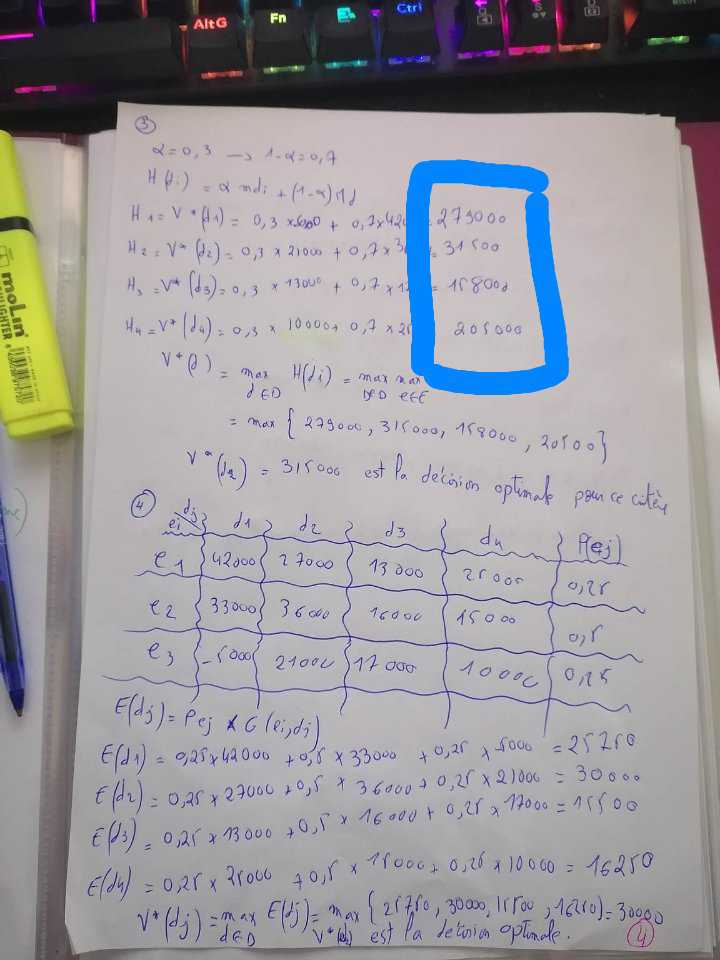 AltG
Fn
Ctrl
moLin
HIGHLIGHTER
③
α = 0,3 → 1-α = 0,7
H(di) = α mdi + (1-α) Md
H1 = V*(d1) = 0,3 × + 0,7 × 420 = 279000
H2 = V*(d2) = 0,3 × 21000 + 0,7 × 3 = 31500
H3 = V*(d3) = 0,3 × 13000 + 0,7 × 17 = 158000
H4 = V*(d4) = 0,3 × 10000 + 0,7 × 25 205000
V*(d) = max H(di) = max max
d∈D D∈D e∈E
= max { 279000, 315000, 158000, 20500 }
V*(d2) = 315000 est la décision optimale pour ce critère
④
ei dj d1 d2 d3 d4 P(ej)
e1 42000 27000 13000 25000 0,25
e2 33000 36000 16000 15000 0,5
e3 -5000 21000 17000 10000 0,25
E(dj) = Pej × G(ei,dj)
E(d1) = 0,25 × 42000 + 0,5 × 33000 + 0,25 × 5000 = 25250
E(d2) = 0,25 × 27000 + 0,5 × 36000 + 0,25 × 21000 = 30000
E(d3) = 0,25 × 13000 + 0,5 × 16000 + 0,25 × 17000 = 15500
E(d4) = 0,25 × 25000 + 0,5 × 15000 + 0,25 × 10000 = 16250
V*(dj) = max E(dj) = max { 25750, 30000, 15500, 16250 } = 30000
d∈D est la décision optimale.
④